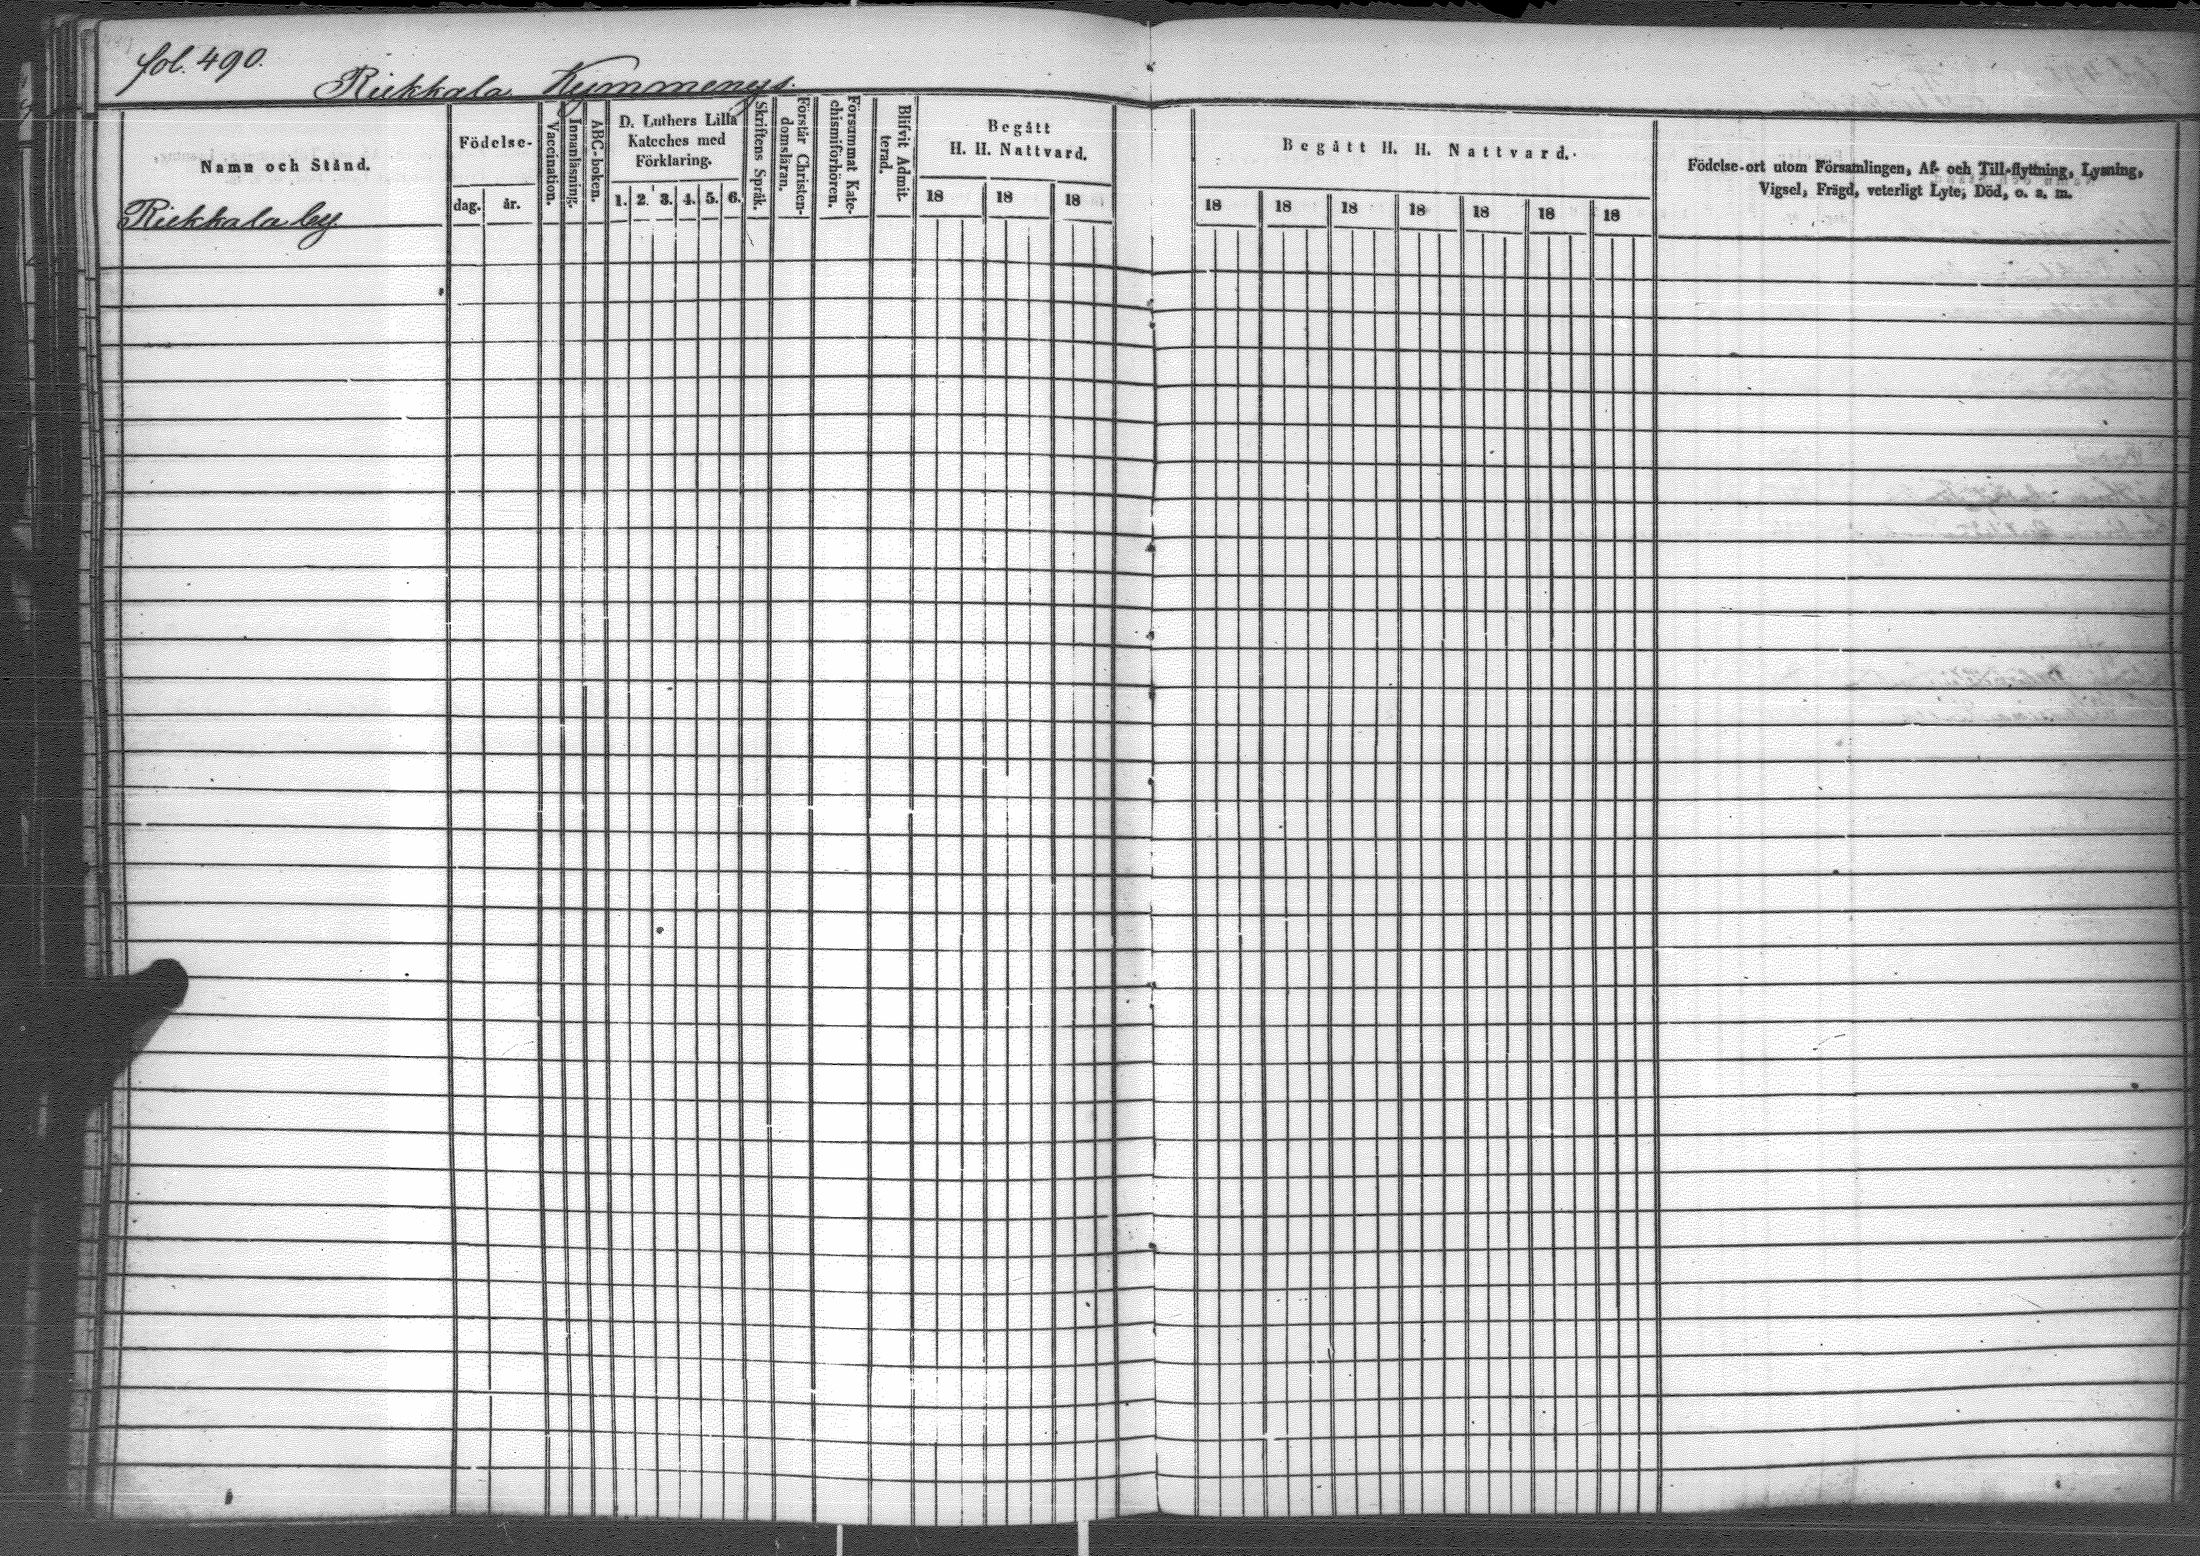 fol. 490.
Riekkala Kymmenys.
Namn och Stånd.
Födelse-
dag. år.
Vaccination.
Innanläsning.
ABC-boken.
D. Luthers Lilla
Kateches med
Förklaring.
1. 2. 3. 4. 5. 6.
Skriftens Språk.
Förstår Christen-
domsläran.
Försummat Kate-
chismiförhören.
Blifvit Admit-
terad.
Begått
H. H. Nattvard.
18 18 18
Begått H. H. Nattvard.
18 18 18 18 18 18 18
Födelse-ort utom Församlingen, Af- och Till-flyttning, Lysning,
Vigsel, Frägd, veterligt Lyte, Död, o. s. m.
Riekkala by